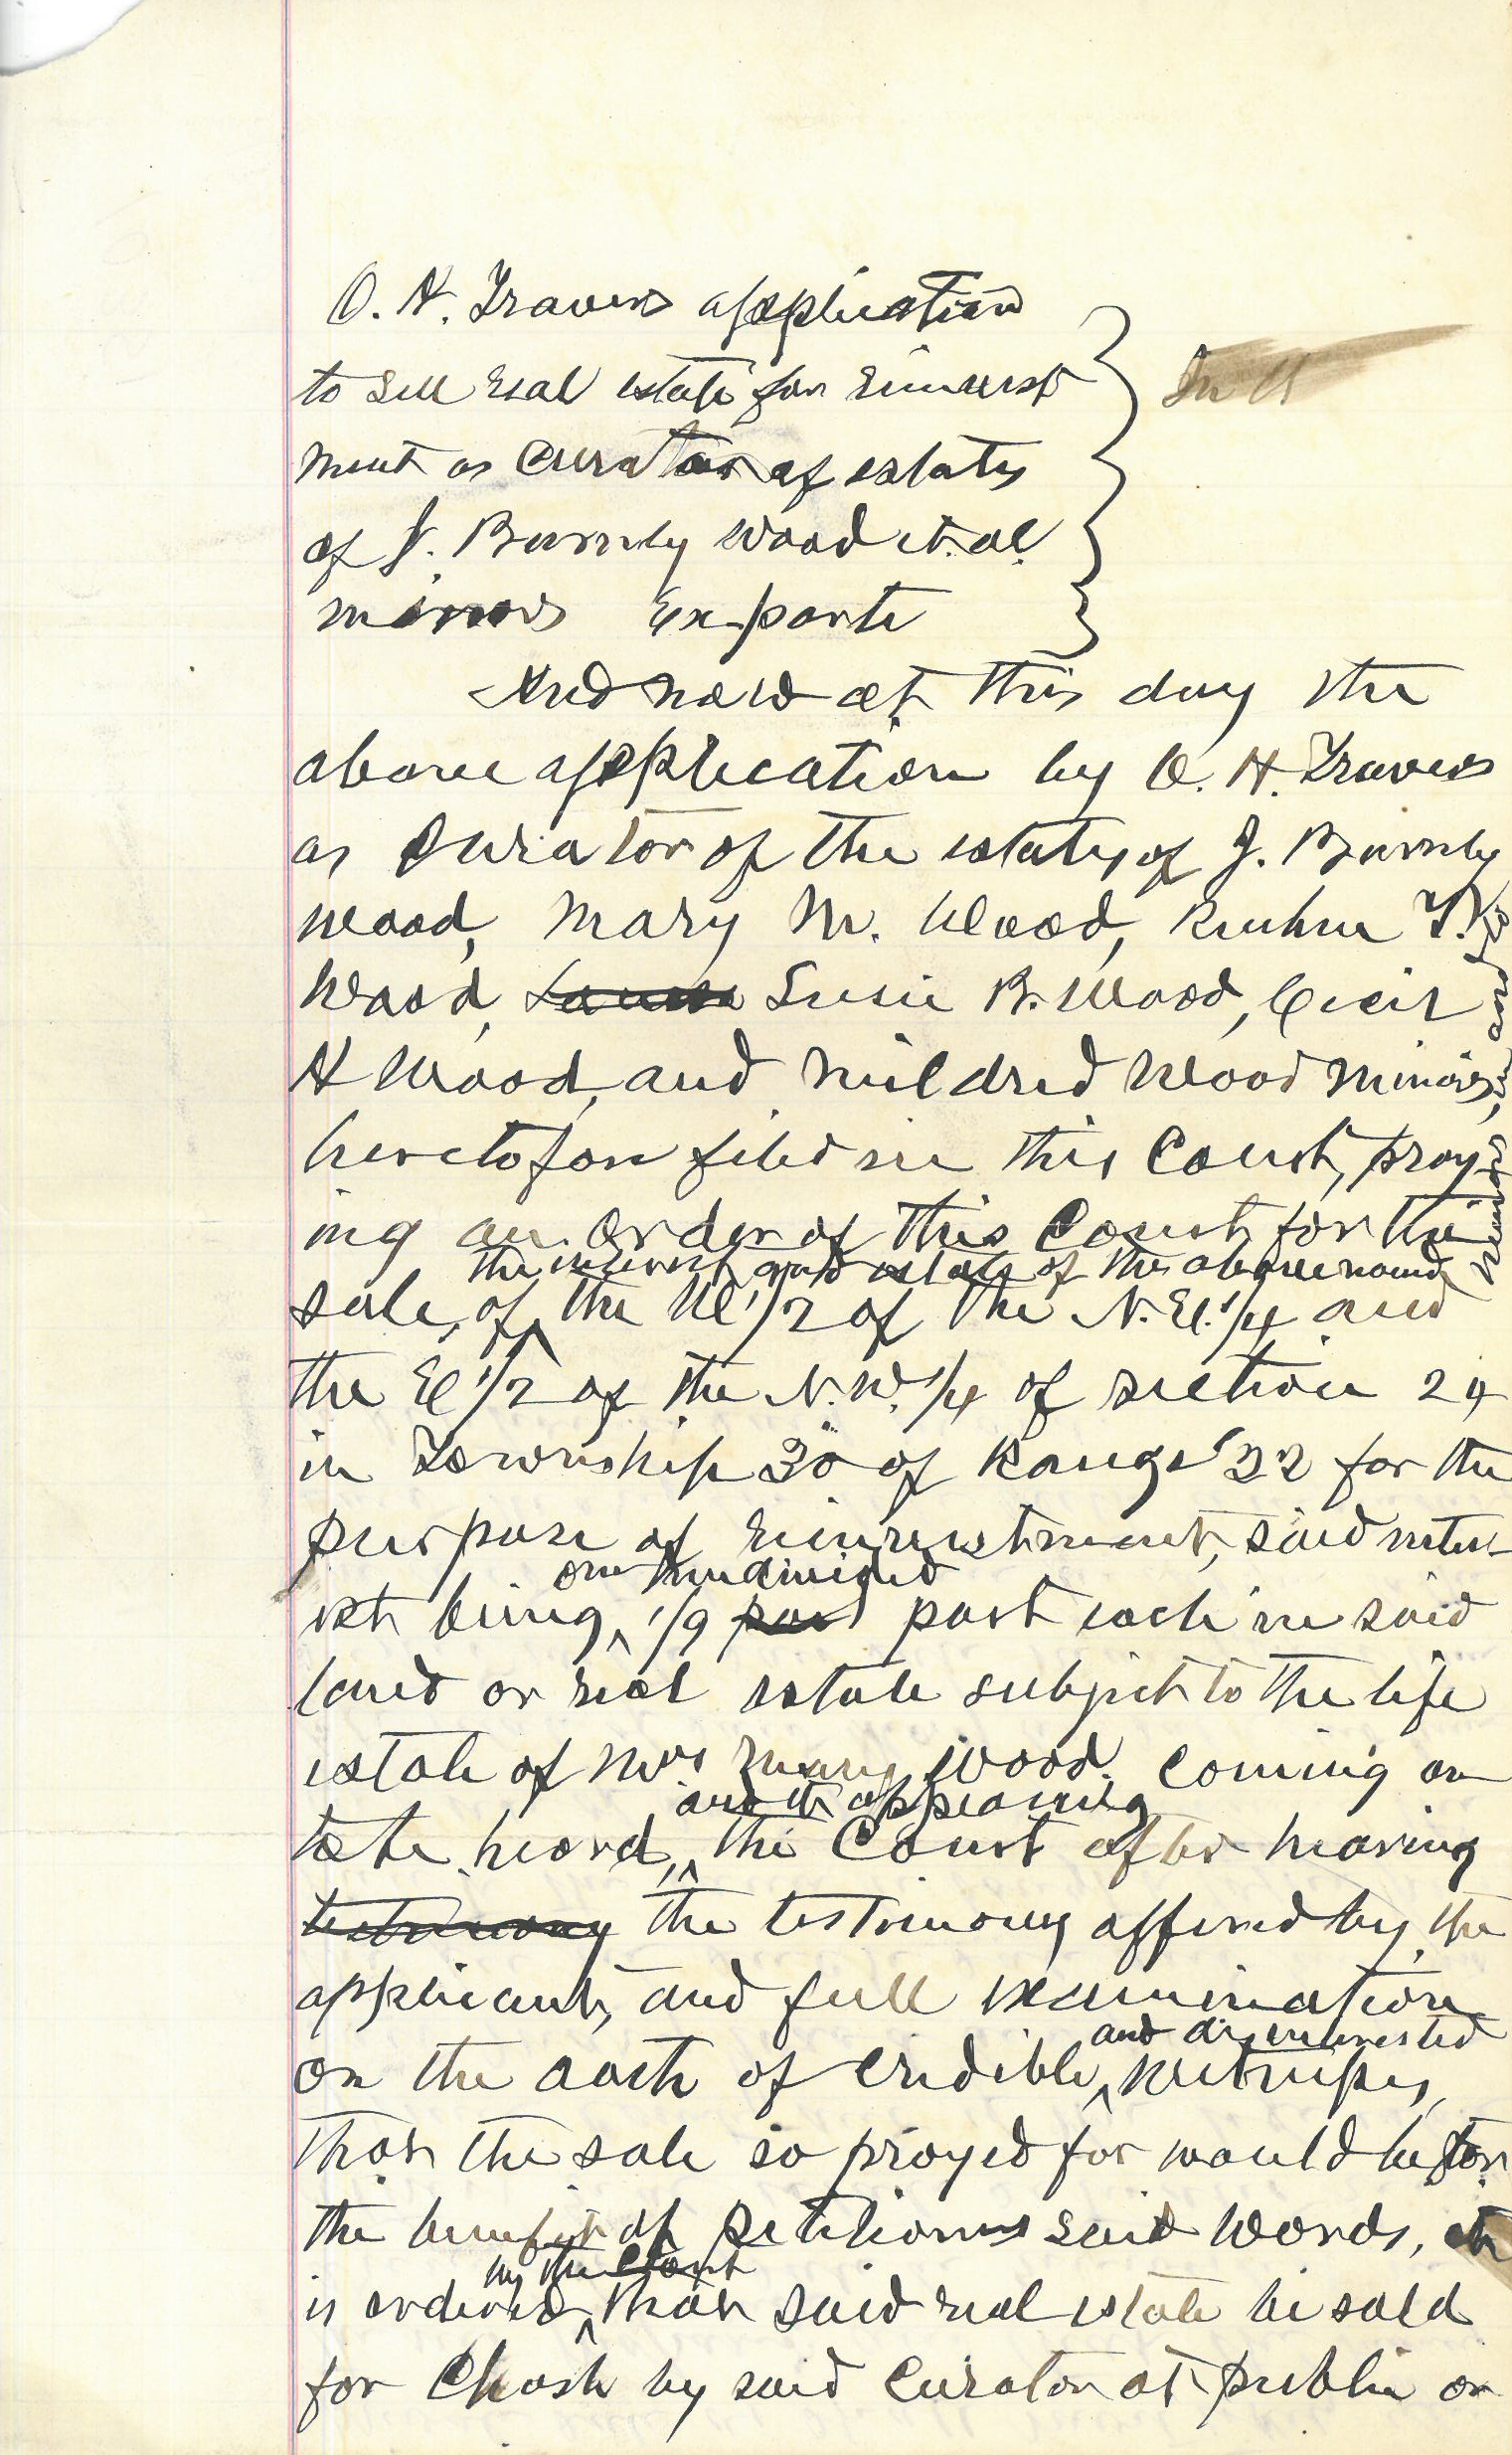 O. H. Travers application
to sell real estate for reinvest
ment as curator of estates
of J. Burnly Wood et. al.
minors Ex-parte
And now at this day the
above application by O. H. Travers
as Curator of the estates of J. Burnly
Wood, Mary M. Wood, T.
Wood, Susie B. Wood, Cecil
H Wood, and Mildred Wood minors,
heretofore filed in this Court, pray
ing an order of this Court for the
the interest and estate of the above named minors, in and to
sale, of, the W 1/2 of the N.E. 1/4 and
the E 1/2 of the N.W. 1/4 of section 24
in Township 30 of Range 22 for the
purpose of reinvestment, said inter
one undivided
est being, 1/9 part part each in said
land or real estate subject to the life
estate of Mrs Mary Wood. Coming on
and it appearing
to be heard, the Court after hearing
testimony the testimony offered by the
applicant, and full examination
and disinterested
on the oath of credible, witnesses,
that the sale so prayed for would be for
the benefit of petitioners said Wards, it
by the Court
is ordered, that said real estate be sold
for Chash by said Curator at public or